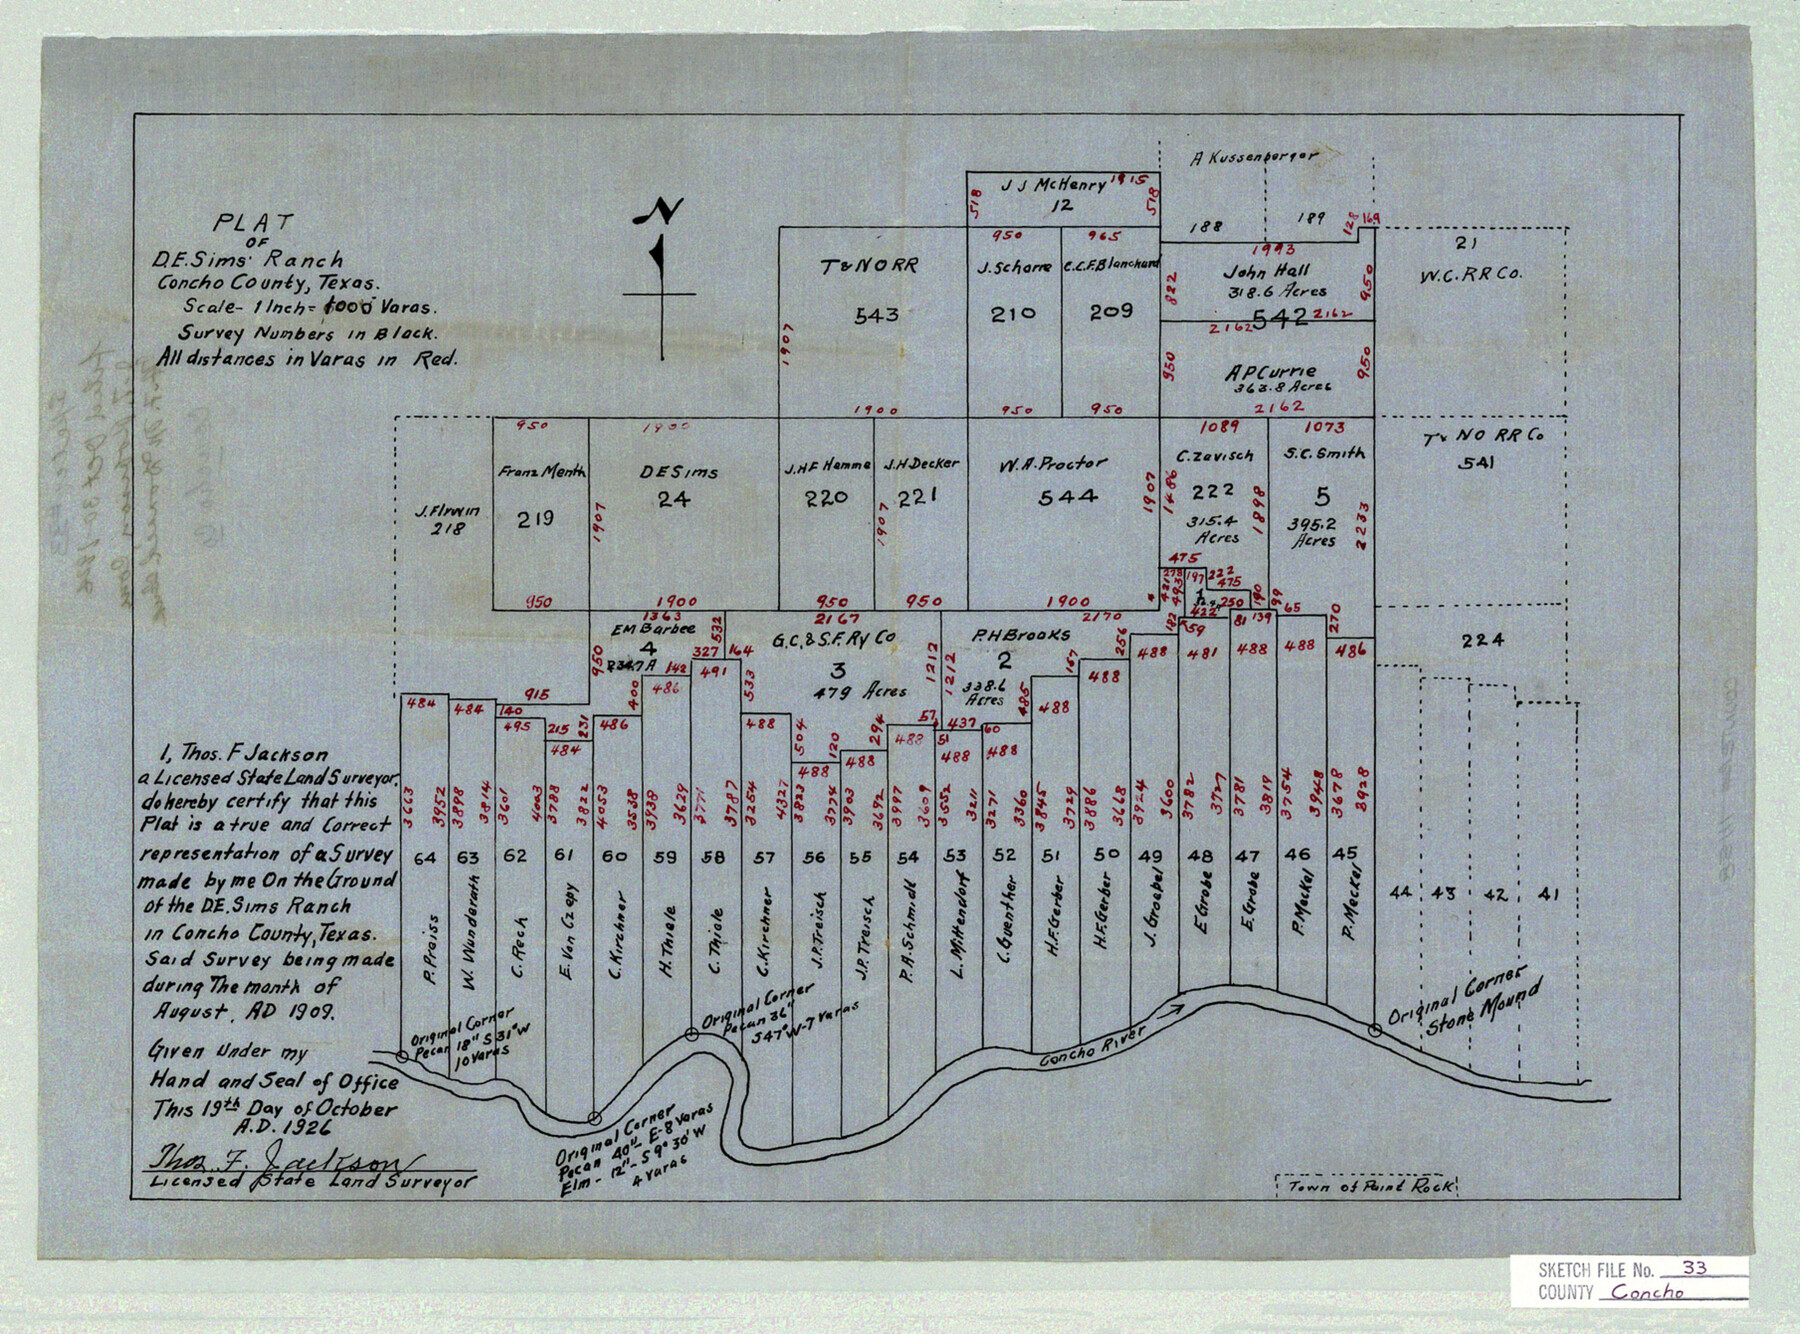 PLAT
OF
D.E. Sims' Ranch
Concho County, Texas.
Scale- 1 Inch = 1000 Varas.
Survey Numbers in Black.
All distances in Varas in Red.
N
A Kussenberger
188
189
128
169
J J McHenry
1915
12
518
518
T & N O RR
543
1907
1900
950
J. Scharre
210
950
965
C.C.F. Blanchard
209
950
1993
John Hall
318.6 Acres
542
822
950
2162
2162
A P Currie
363.8 Acres
950
950
2162
21
W.C. RR Co.
J. F Irwin
218
950
Franz Menth
219
950
1900
D E Sims
24
1907
1900
J.H.F Hamme
220
950
J.H. Decker
221
1907
950
W. A. Proctor
544
1907
1900
1089
C. Zavisch
222
315.4
Acres
1486
1898
475
1073
S.C. Smith
5
395.2
Acres
2233
T & NO RR Co
541
224
278
421
493
197
222
475
1
250
422
190
99
65
270
1363
E M Barbee
4
950
532
327
164
142
400
2167
G.C. & S.F. Ry Co
3
479 Acres
1212
533
2170
P.H Brooks
2
338.6
Acres
1212
485
167
256
182
59
81
139
484
484
915
140
495
215
231
484
486
486
491
488
504
488
120
488
294
488
57
51
437
488
60
488
488
488
488
481
488
488
486
3663
3952
3898
3814
3601
4003
3788
3822
4053
3538
3938
3629
3771
3787
3254
4327
3823
3774
3903
3692
3997
3609
3552
3211
3271
3360
3845
3729
3886
3668
3724
3600
3782
3727
3781
3819
3754
3948
3678
3928
64
63
62
61
60
59
58
57
56
55
54
53
52
51
50
49
48
47
46
45
44
43
42
41
P. Preiss
W. Wunderath
C. Rech
E. Von Czepy
C. Kirchner
H. Thiele
C. Thiele
C. Kirchner
J.P. Treisch
J.P. Treisch
P. A. Schmidt
L. Mittendorf
C. Guenther
H.F. Gerber
H.F. Gerber
J. Groebel
E Grobe
E. Grobe
P. Meckel
P. Meckel
Original Corner
Pecan 18" S 31° W
10 Varas
Original Corner
Pecan 36"
S 47° W-7 Varas
Original Corner
Pecan 40" E-8 Varas
Elm - 12" - S 9° 30' W
4 Varas
Concho River
Original Corner
Stone Mound
Town of Paint Rock
I, Thos. F Jackson
a Licensed State Land Surveyor,
do hereby certify that this
Plat is a true and Correct
representation of a Survey
made by me On the Ground
of the D.E. Sims Ranch
in Concho County, Texas.
Said Survey being made
during The month of
August, AD 1909.
Given Under my
Hand and Seal of Office
This 19th Day of October
A.D. 1926
Thos. F. Jackson
Licensed State Land Surveyor
SKETCH FILE No. 33
COUNTY Concho